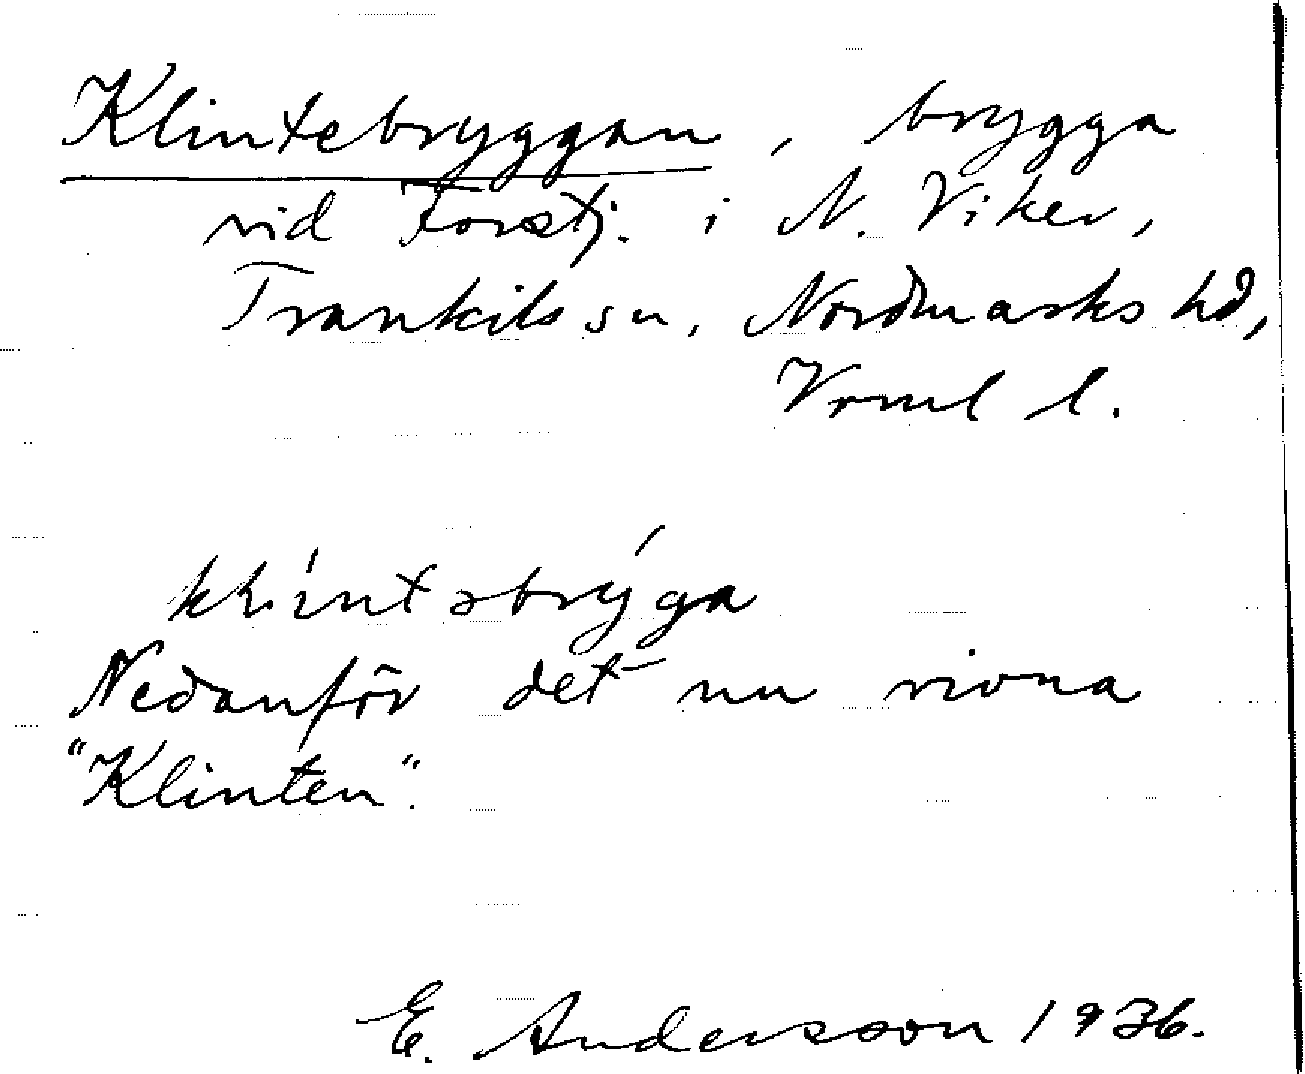 Klintebryggan, brygga
vid Forstj. i N. Viker,
Trankils sn, Nordmarks hd,
Vrml l.
Nedanför det nu rivna
"Klinten".
E. Andersson 1936.